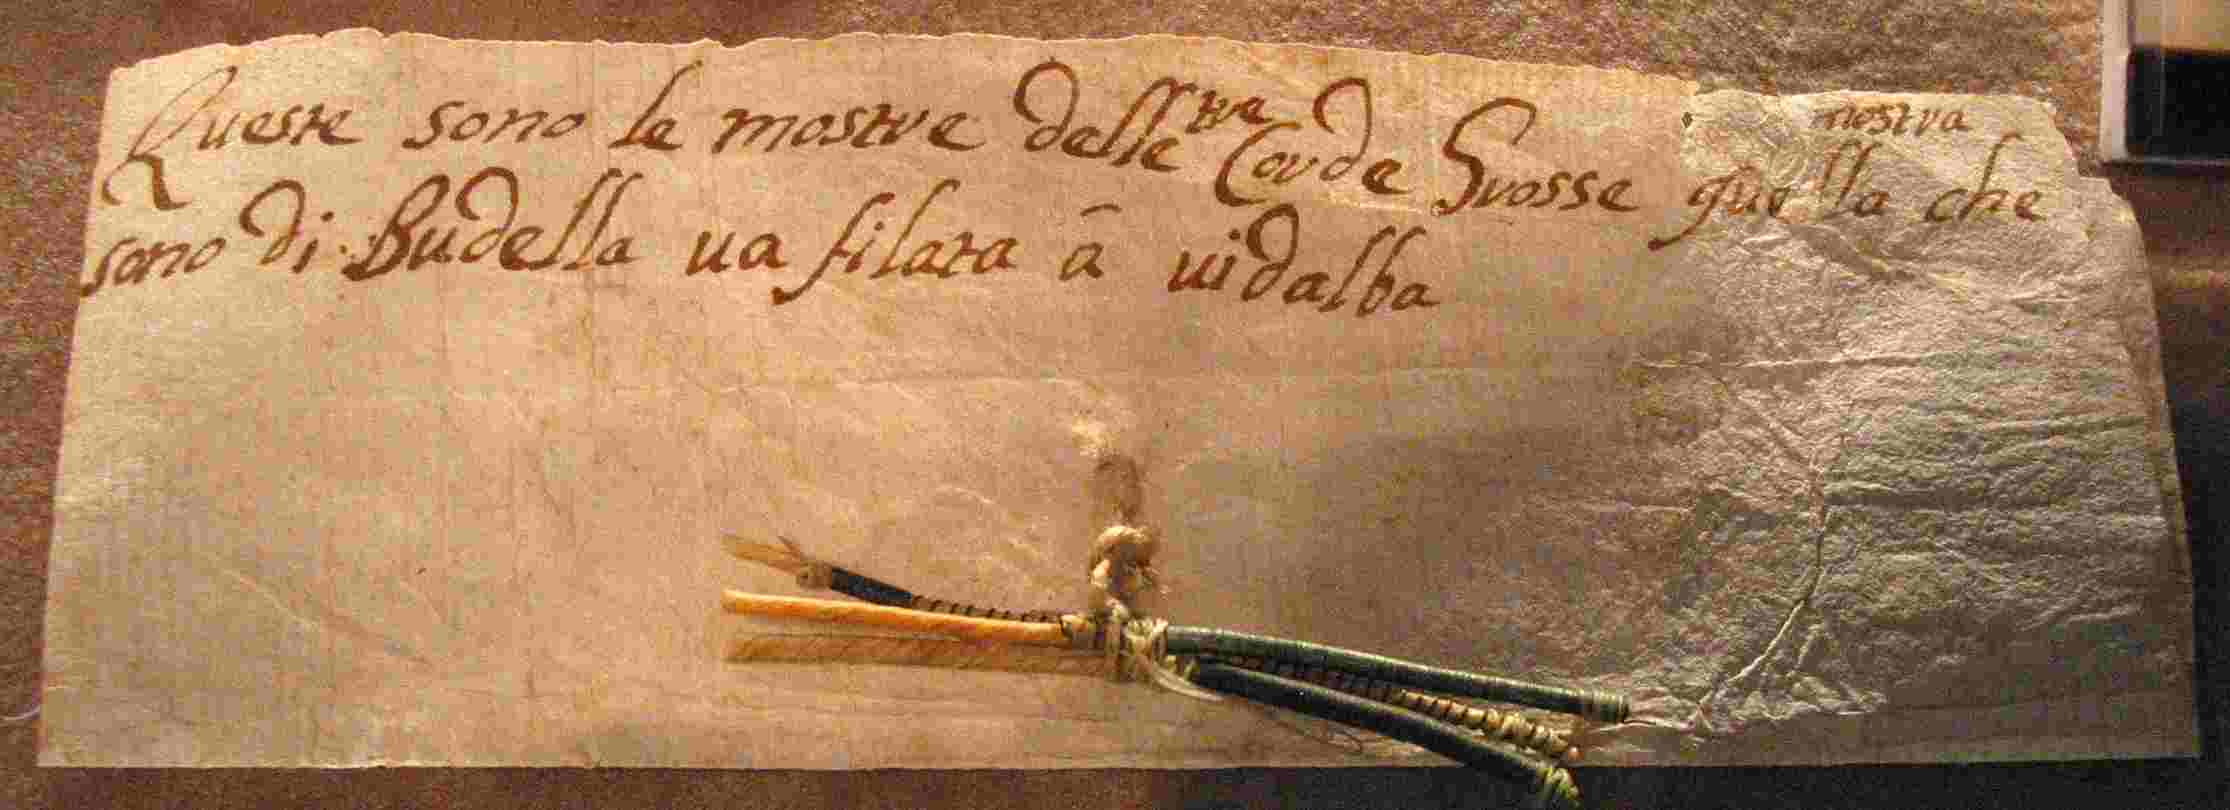 Queste sono le mostre delle tre Corde Grosse quella nostra che
sono di Budella ua filata à uidalba